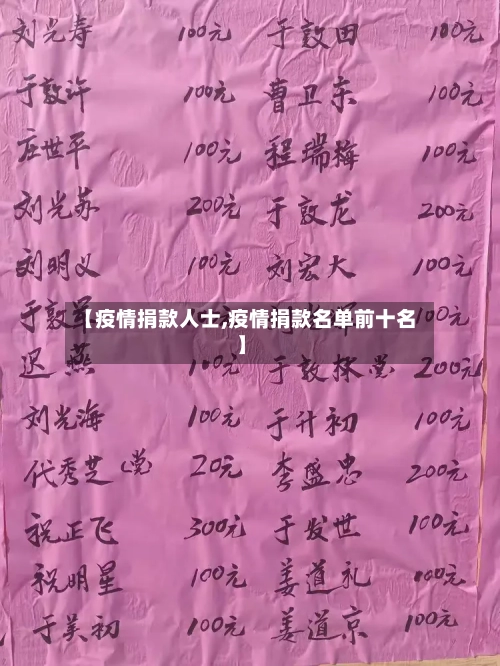 刘光寿 100元 于敦田 100元
于敦许 100元 曹卫东 100元
庄世平 100元 程瑞梅 100元
刘光苏 200元 于敦龙 200元
刘明义 100元 刘宏大 100元
于敦军 100元
【疫情捐款人士,疫情捐款名单前十名
】
迟燕 100元 于敦林 党 200元
刘光海 100元 于升初 100元
代秀芝(党) 20元 李盛忠 200元
祝正飞 300元 于发世 100元
祝明星 100元 姜道礼 100元
于美初 100元 姜道京 100元